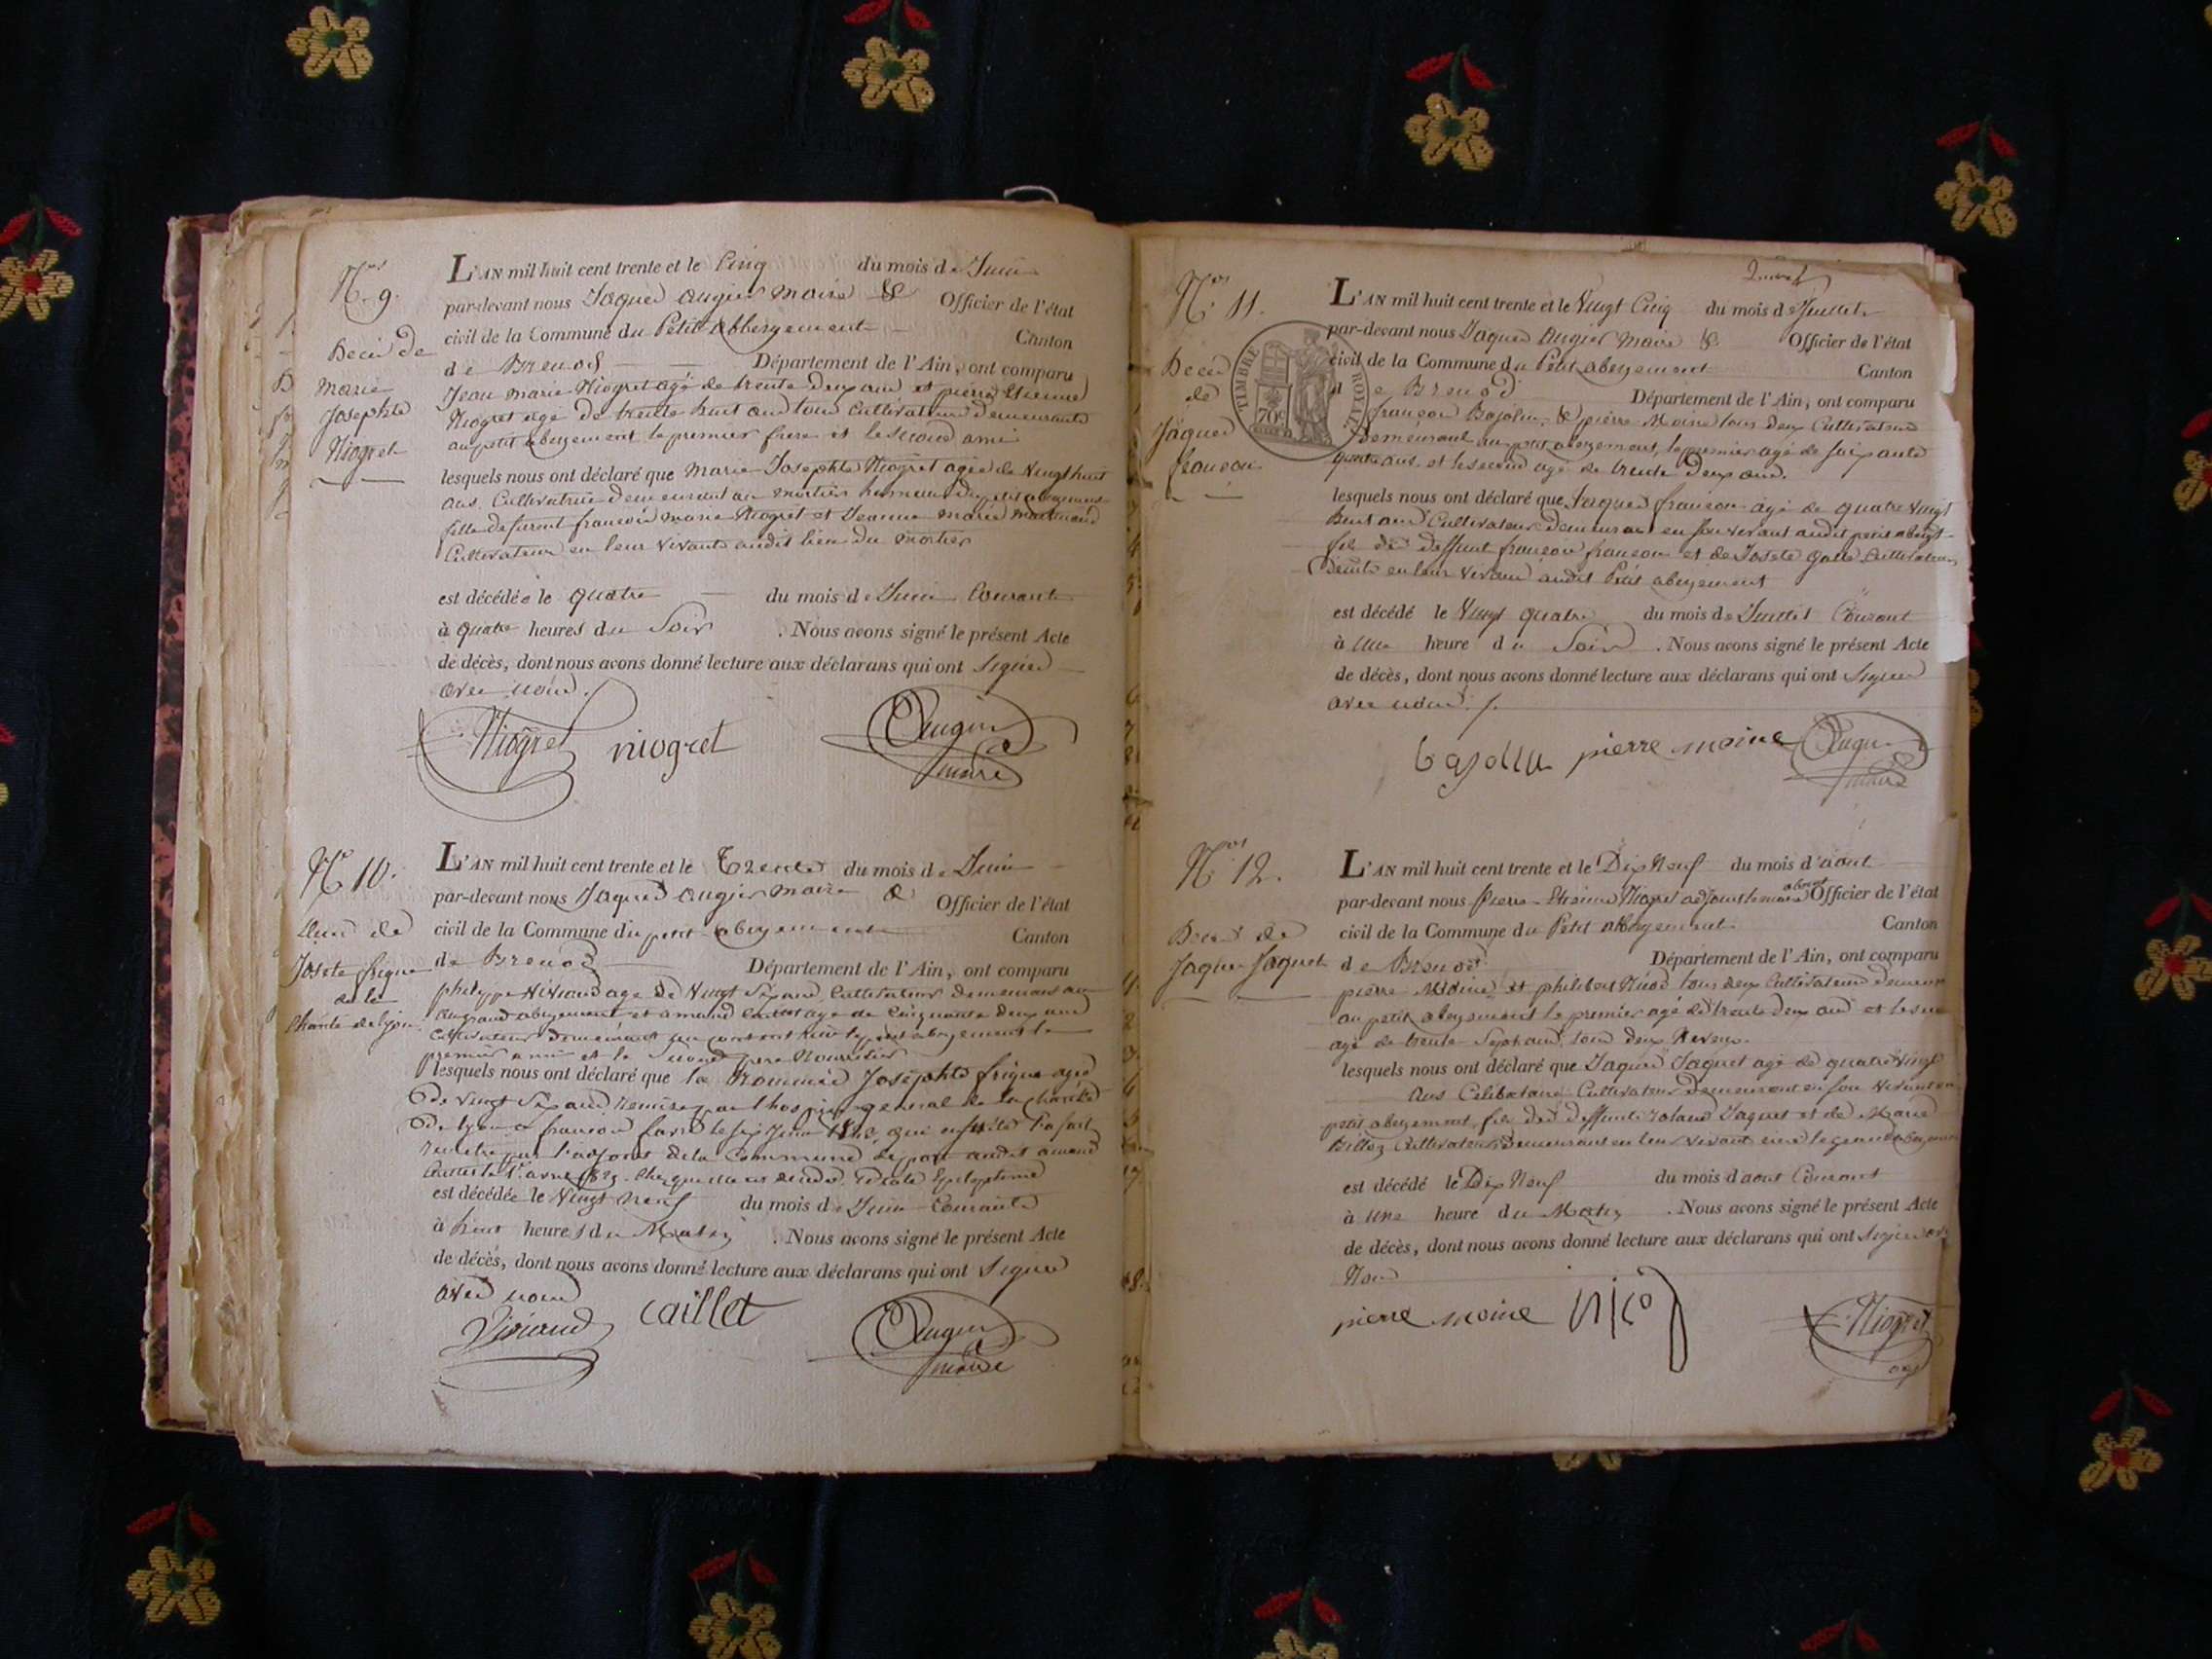 Nos 9.
Décès de
Marie
Josephte
Niogret
L'AN mil huit cent trente et le Cinq du mois de Juin
par-devant nous Jaques augier maire & Officier de l'état
civil de la Commune du Petit abbergement Canton
de Brenod Département de l'Ain, ont comparu
Jean marie Niogret agé de trente deux ans et pierre Etienne
Niogret agé de trente huit ans tous Cultivateurs demeurants
au petit abergement le premier frere et le second ami
lesquels nous ont déclaré que Marie Josephte Niogret agée de Vingt huit
ans Cultivatrice demeurant au mortier hameau du petit abergement
fille de furent francois marie Niogret et Jeanne marie
Cultivateurs en leur Vivants audit lieu du mortier
est décédée le quatre du mois de Juin Courant
à quatre heures du Soir . Nous avons signé le présent Acte
de décès, dont nous avons donné lecture aux déclarans qui ont Signés
avec nous.
Niogret niogret Augier
maire
No 10.
Décès de
Josete frique
de la
Charité de lyon
L'AN mil huit cent trente et le Trente du mois de Juin
par-devant nous Jaques augier maire & Officier de l'état
civil de la Commune du petit abergement Canton
de Brenod Département de l'Ain, ont comparu
philippe Viviand agé de Vingt Six ans, Cultivateur demeurant au
Grand abergement et amand Caillet agé de Cinquante deux ans
Cultivateur demeurant le petit abergement le
premier ami et le Second pere Nourricier
lesquels nous ont déclaré que la Nommée Josephte frique agée
De vingt Six ans, Remise par l'hospice general de la charité
De lyon a francois favre le six Juin qui ensuite l'a fait
remettre par l'adjoint de la Commune audit amand
Caillet le 1er avril chez
est décédée le Vingt neuf du mois de Juin Courant
à huit heures du Matin . Nous avons signé le présent Acte
de décès, dont nous avons donné lecture aux déclarans qui ont Signés
avec nous
Viviand caillet Augier
maire
Nos 11.
Décès
de
Jaques
francon
TIMBRE ROYAL
70c
L'AN mil huit cent trente et le Vingt Cinq du mois de Juillet
par-devant nous Jaques Augier Maire & Officier de l'état
civil de la Commune du Petit abergement Canton
de Brenod Département de l'Ain, ont comparu
francois Bajollin & pierre Moine tous deux Cultivateurs
demeurant au petit abergement, le premier agé de soixante
quatre ans et le second agé de trente deux ans.
lesquels nous ont déclaré que Jaques francon agé de quatre Vingt
huit ans Cultivateur demeurant en son vivant audit petit abergt
fils de deffunt francois francon et de Josete Cultivateurs
en leur vivant audit Petit abergement
est décédé le Vingt quatre du mois de Juillet Courant
à Une heure du Soir . Nous avons signé le présent Acte
de décès, dont nous avons donné lecture aux déclarans qui ont Signés
avec nous.
pierre moine Augier
maire
Nos 12.
Décès de
Jaques Jaquet
L'AN mil huit cent trente et le Dix Neuf du mois d'aout
par-devant nous Pierre Etienne Niogret adjoint le maire absent Officier de l'état
civil de la Commune du Petit abbergement Canton
de Brenod Département de l'Ain, ont comparu
pierre Moine et philibert Nicod tous deux Cultivateurs
au petit abergement le premier agé de trente deux ans et le
agé de trente Sept ans, tous deux Neveux.
lesquels nous ont déclaré que Jaques Jaquet agé de quatre Vingt
ans Celibataire Cultivateur demeurant en son vivant au
petit abergement, fils des deffunts roland Jaquet et de Marie
Billioz Cultivateurs Demeurant en leur vivant le grand abergement
est décédé le Dix Neuf du mois d aout Courant
à Une heure du Matin . Nous avons signé le présent Acte
de décès, dont nous avons donné lecture aux déclarans qui ont Signés avec
Nous
pierre moine nicod Niogret